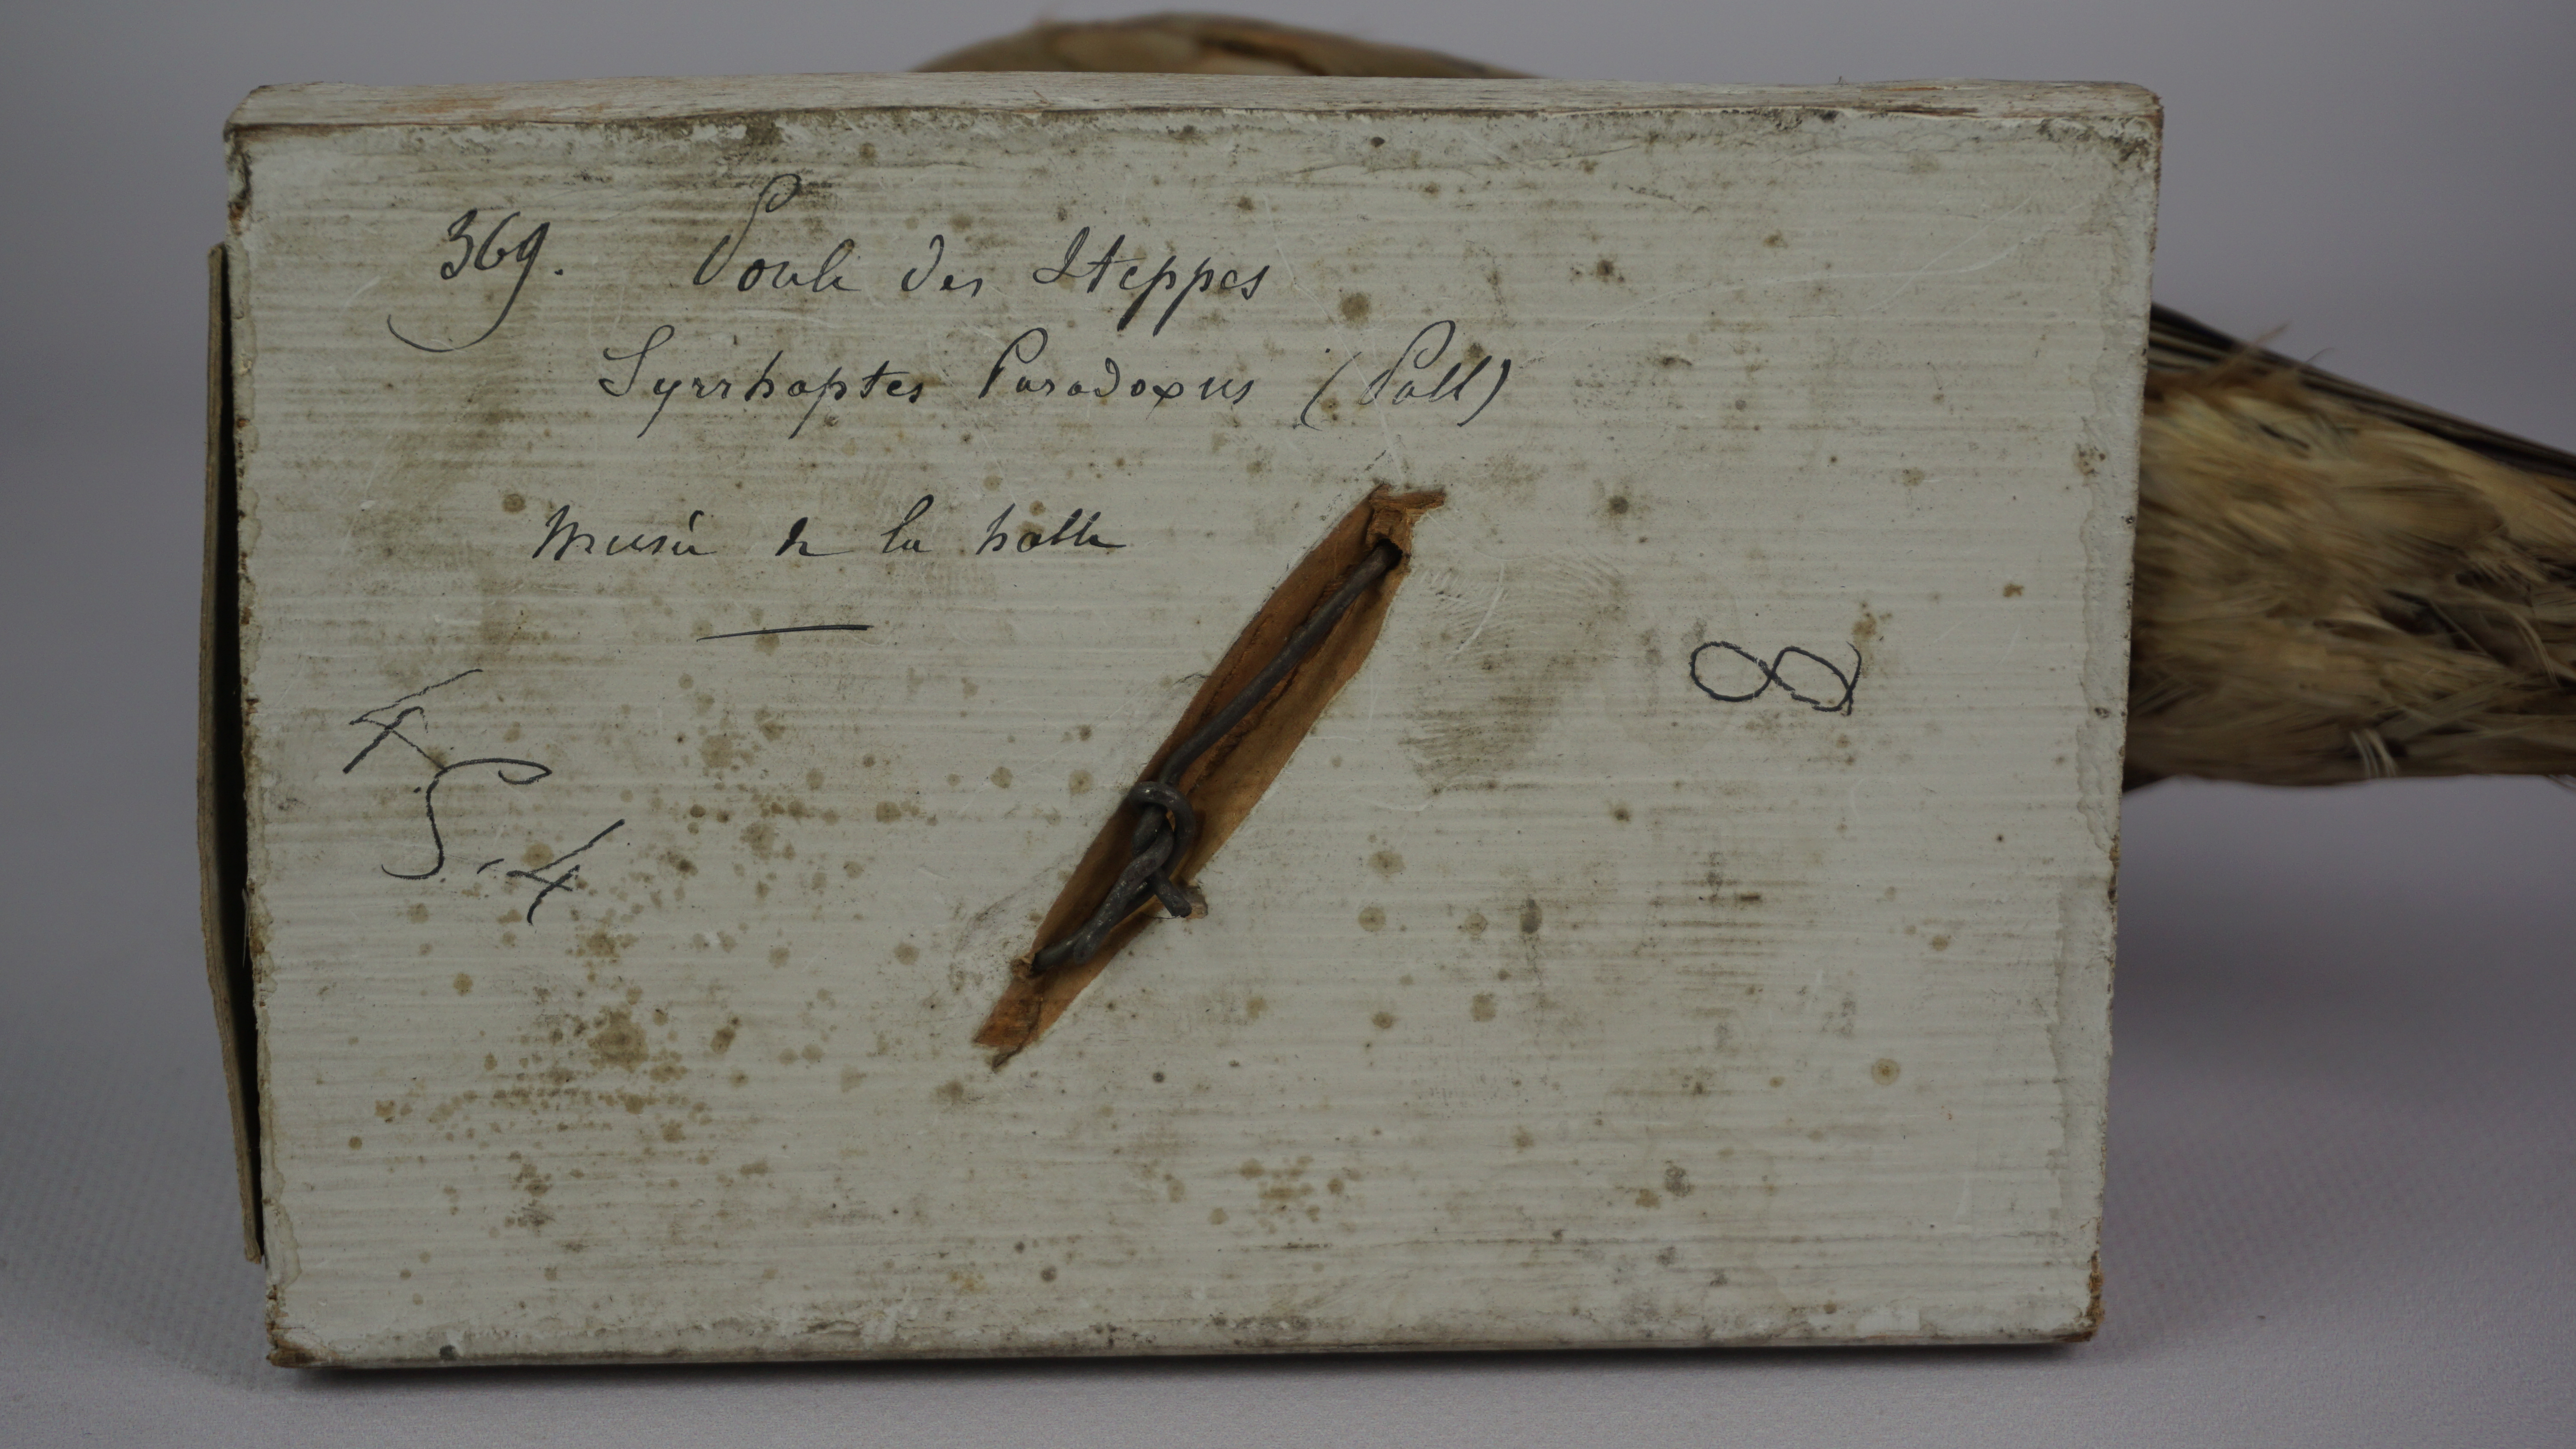 369. Poule des Steppes
Syrrhaptes Paradoxus (Pall)
Musée de la halle
S.-4
8